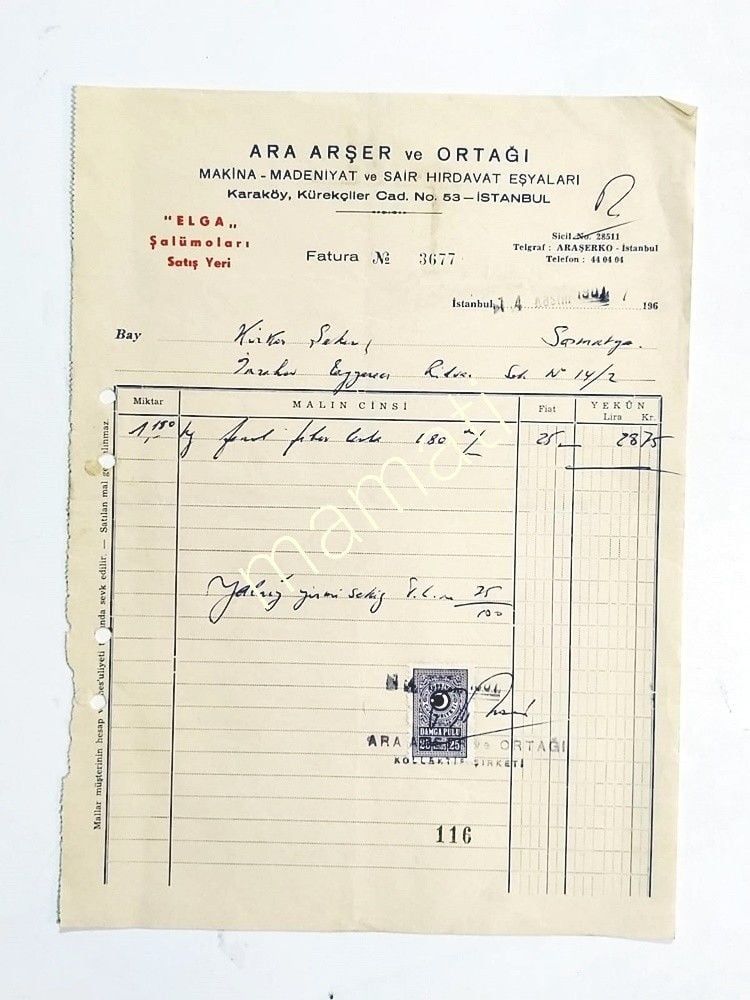 ARA ARŞER ve ORTAĞI
MAKİNA - MADENİYAT ve SAİR HIRDAVAT EŞYALARI
Karaköy, Kürekçiler Cad. No. 53 — İSTANBUL
"ELGA„
Şalümoları
Satış Yeri
Fatura № 3677
Sicil No. 28511
Telgraf : ARAŞERKO - İstanbul
Telefon : 44 04 04
İstanbul, 14 196
Bay
Samatya.
Sok. N 14/2
Miktar MALIN CİNSİ Fiat YEKÛN
Lira Kr.
kg 180 25 28 75
Yalnız yirmi sekiz T.L. 75/100
DAMGA PULU
25
ARA ve ORTAĞI
KOLLEKTİF ŞİRKETİ
116
Mallar müşterinin hesap sevk edilir. — Satılan mal geri alınmaz
mamati